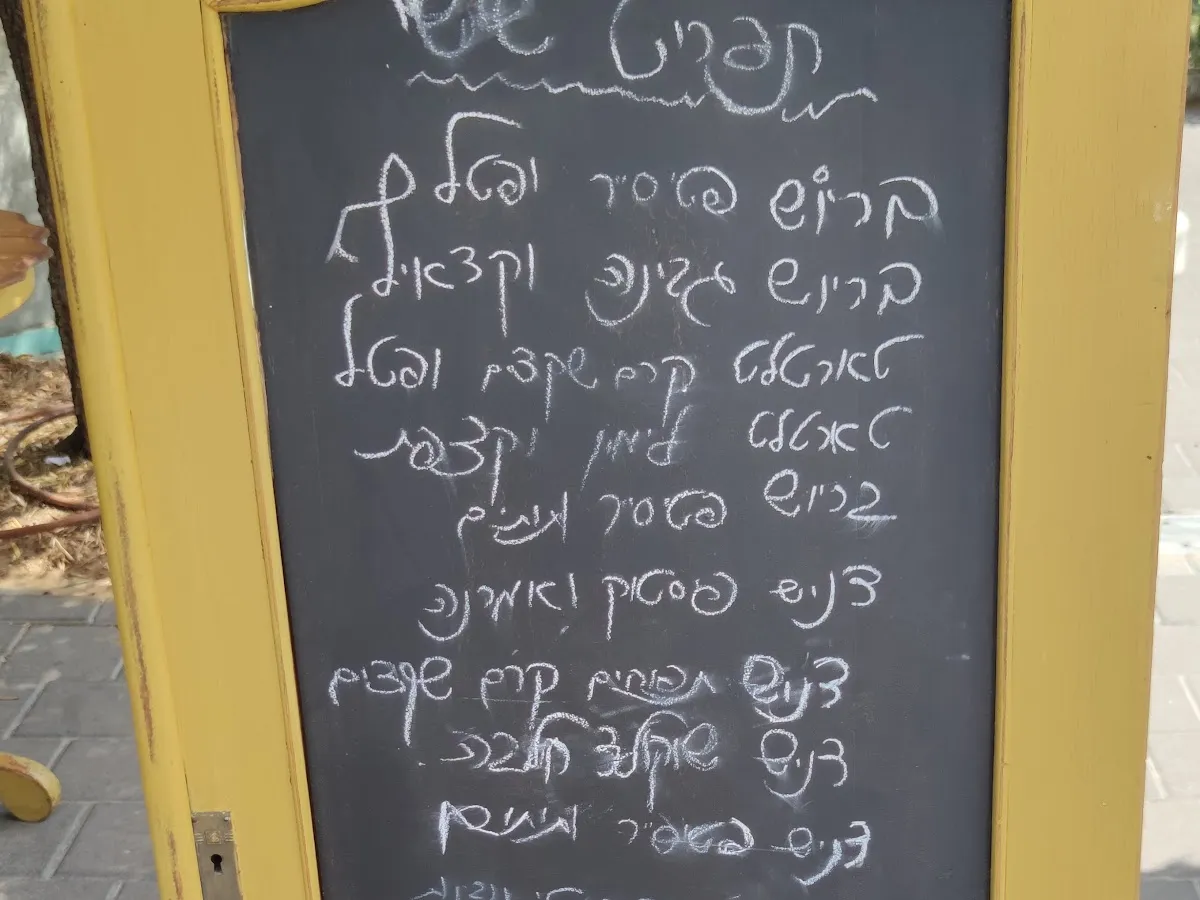 תפריט שישי
בריוש פטיסייר ופטל
בריוש גבינה וקצאיל
טארטלט קרם שקדים ופטל
טארטלט לימון וקצפת
בריוש פטיסייר תותים
דניש פסטוק ואמרנה
דניש תפוחים קרם שקדים
דניש שוקולד
דניש פטיסייר תותים